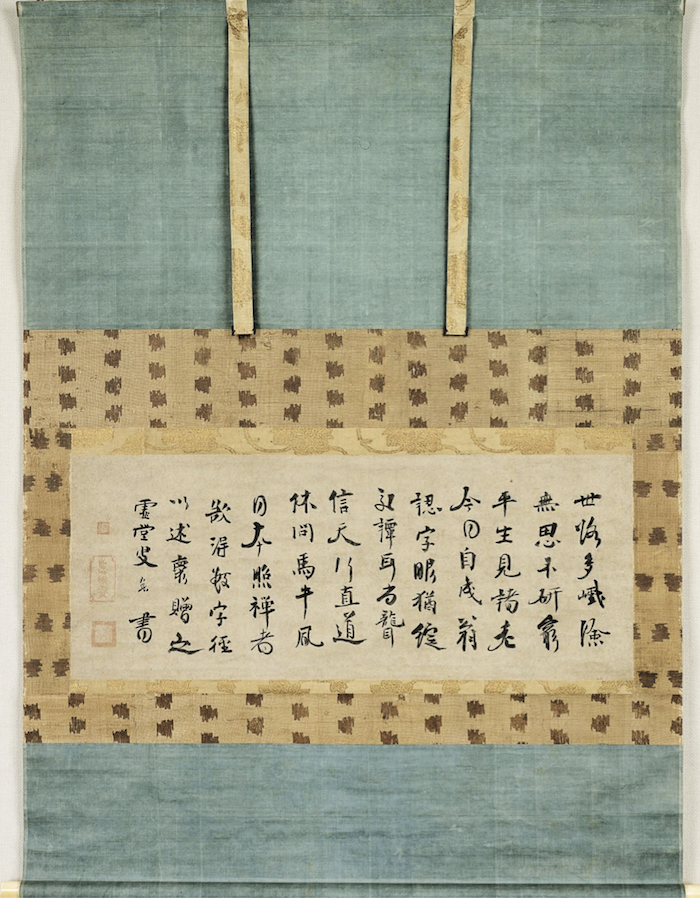 世路多巇險
無思不研窮
平生見諸老
今日自成翁
認字眼猶綻
交譚耳尚聾
信天行直道
休問馬牛風
日本照禪者
欲得數字徑
以述懷贈之
虛堂叟 書